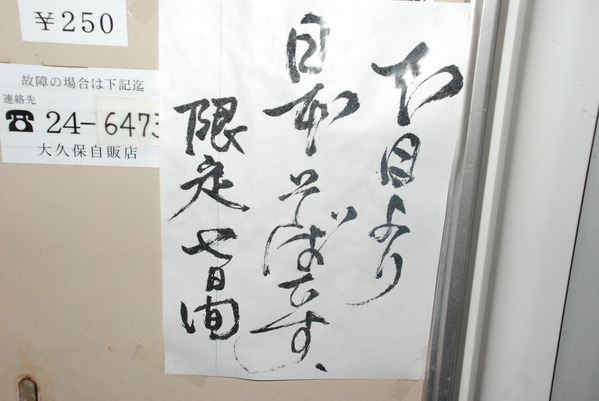 ¥250
故障の場合は下記迄
連絡先
☎ 24-6473
大久保自販店
本日より
日本そばです、
限定七日間